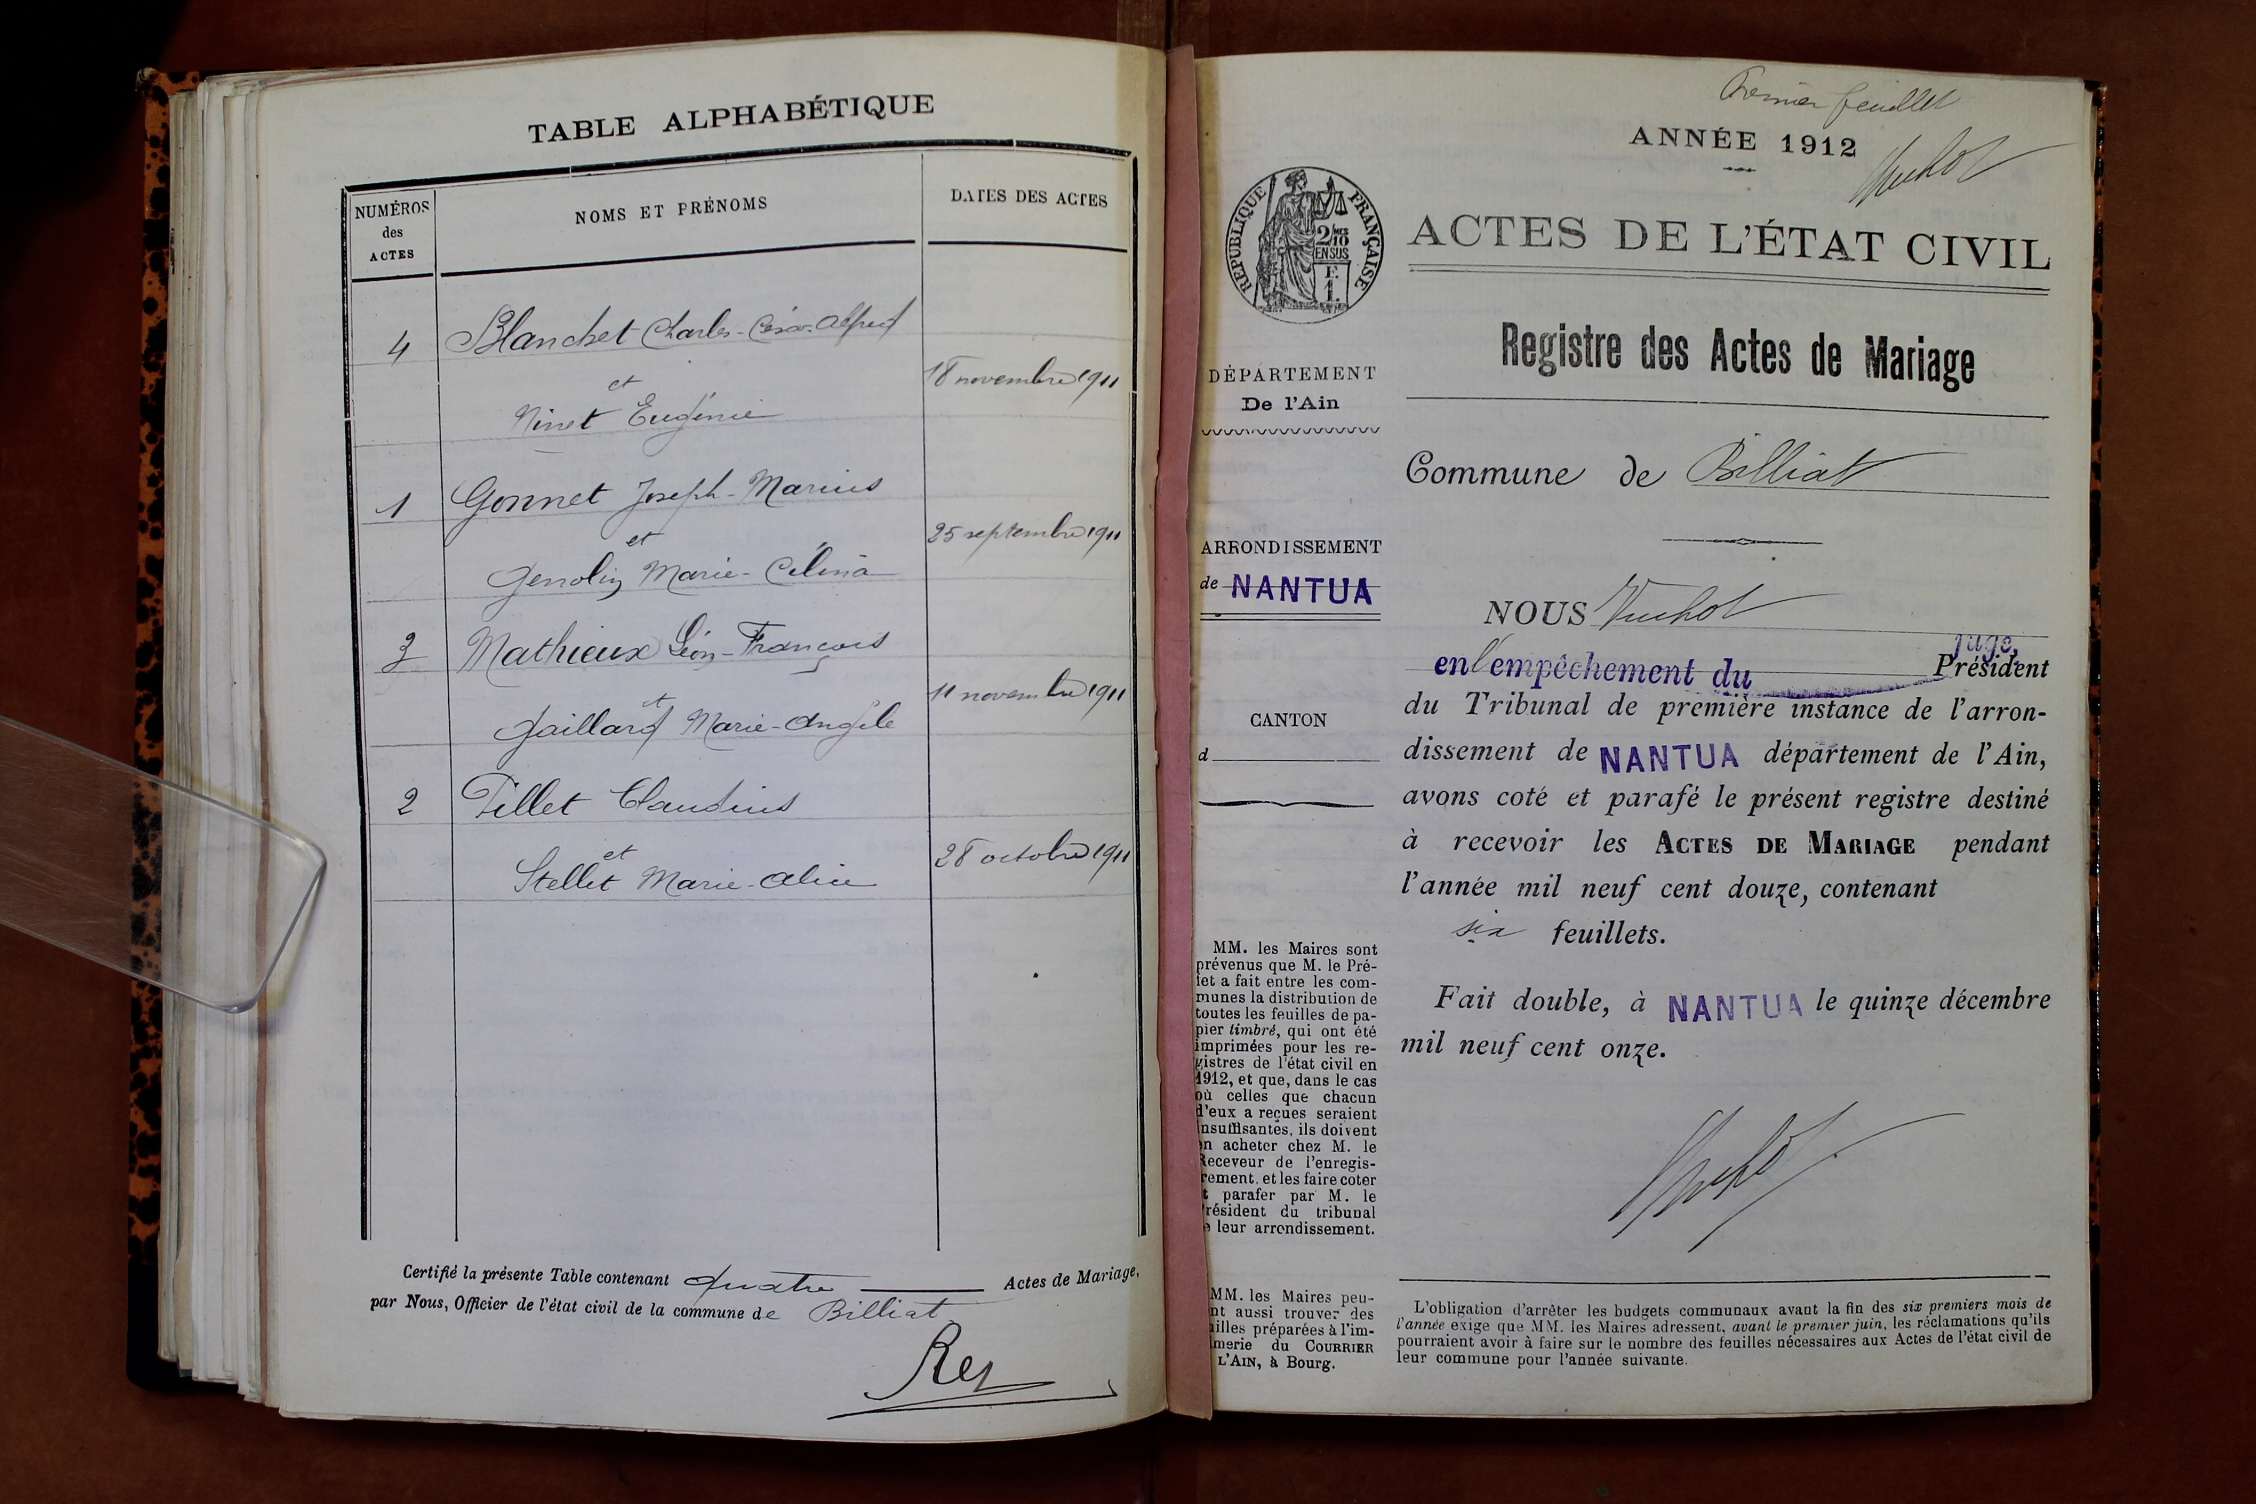 TABLE ALPHABÉTIQUE
NUMÉROS
des
ACTES
NOMS ET PRÉNOMS
DATES DES ACTES
4
Blanchet Charles-César-Alfred
et
Ninet Eugénie
18 novembre 1911
1
Gonnet Joseph-Marius
et
Marie-Célina
25 septembre 1911
3
Mathieux Léon-François
et
Gaillard Marie-Angèle
11 novembre 1911
2
Tillet Claudius
et
Stellet Marie-Alice
28 octobre 1911
Certifié la présente Table contenant quatre Actes de Mariage,
par Nous, Officier de l'état civil de la commune de Billiat
Rey
Premier feuillet
ANNÉE 1912
RÉPUBLIQUE FRANÇAISE
2/10
EN SUS
ACTES DE L'ÉTAT CIVIL
Registre des Actes de Mariage
DÉPARTEMENT
De l'Ain
Commune de Billiat
ARRONDISSEMENT
de NANTUA
CANTON
d
NOUS
juge,
en l'empêchement du Président
du Tribunal de première instance de l'arron-
dissement de NANTUA département de l'Ain,
avons coté et parafé le présent registre destiné
à recevoir les ACTES DE MARIAGE pendant
l'année mil neuf cent douze, contenant
six feuillets.
Fait double, à NANTUA le quinze décembre
mil neuf cent onze.
MM. les Maires sont
prévenus que M. le Pré-
fet a fait entre les com-
munes la distribution de
toutes les feuilles de pa-
pier timbré, qui ont été
imprimées pour les re-
gistres de l'état civil en
1912, et que, dans le cas
où celles que chacun
d'eux a reçues seraient
insuffisantes, ils doivent
en acheter chez M. le
Receveur de l'enregis-
rement, et les faire coter
t parafer par M. le
résident du tribunal
e leur arrondissement.
MM. les Maires peu-
nt aussi trouver des
illes préparées à l'im-
merie du COURRIER
L'AIN, à Bourg.
L'obligation d'arrêter les budgets communaux avant la fin des six premiers mois de
l'année exige que MM. les Maires adressent, avant le premier juin, les réclamations qu'ils
pourraient avoir à faire sur le nombre des feuilles nécessaires aux Actes de l'état civil de
leur commune pour l'année suivante.